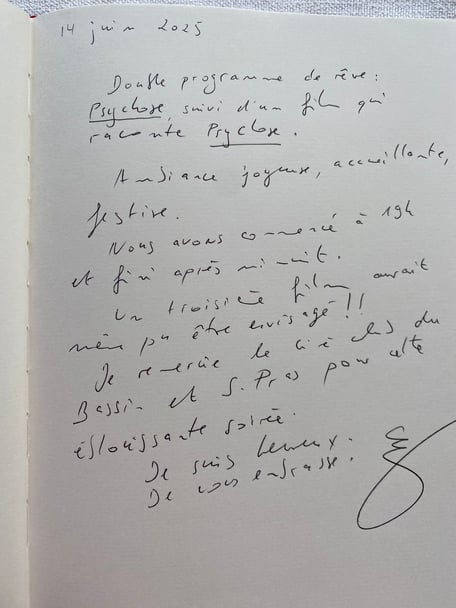 14 juin 2025
Double programme de rêve :
Psychose, suivi d'un film qui
raconte Psychose.
Ambiance joyeuse, accueillante,
festive.
Nous avons commencé à 19h
et fini après minuit.
Un troisième film aurait
même pu être envisagé !!
Je remercie le ciné club du
Bassin et S. Pras pour cette
éblouissante soirée.
Je suis heureux.
Je vous embrasse.